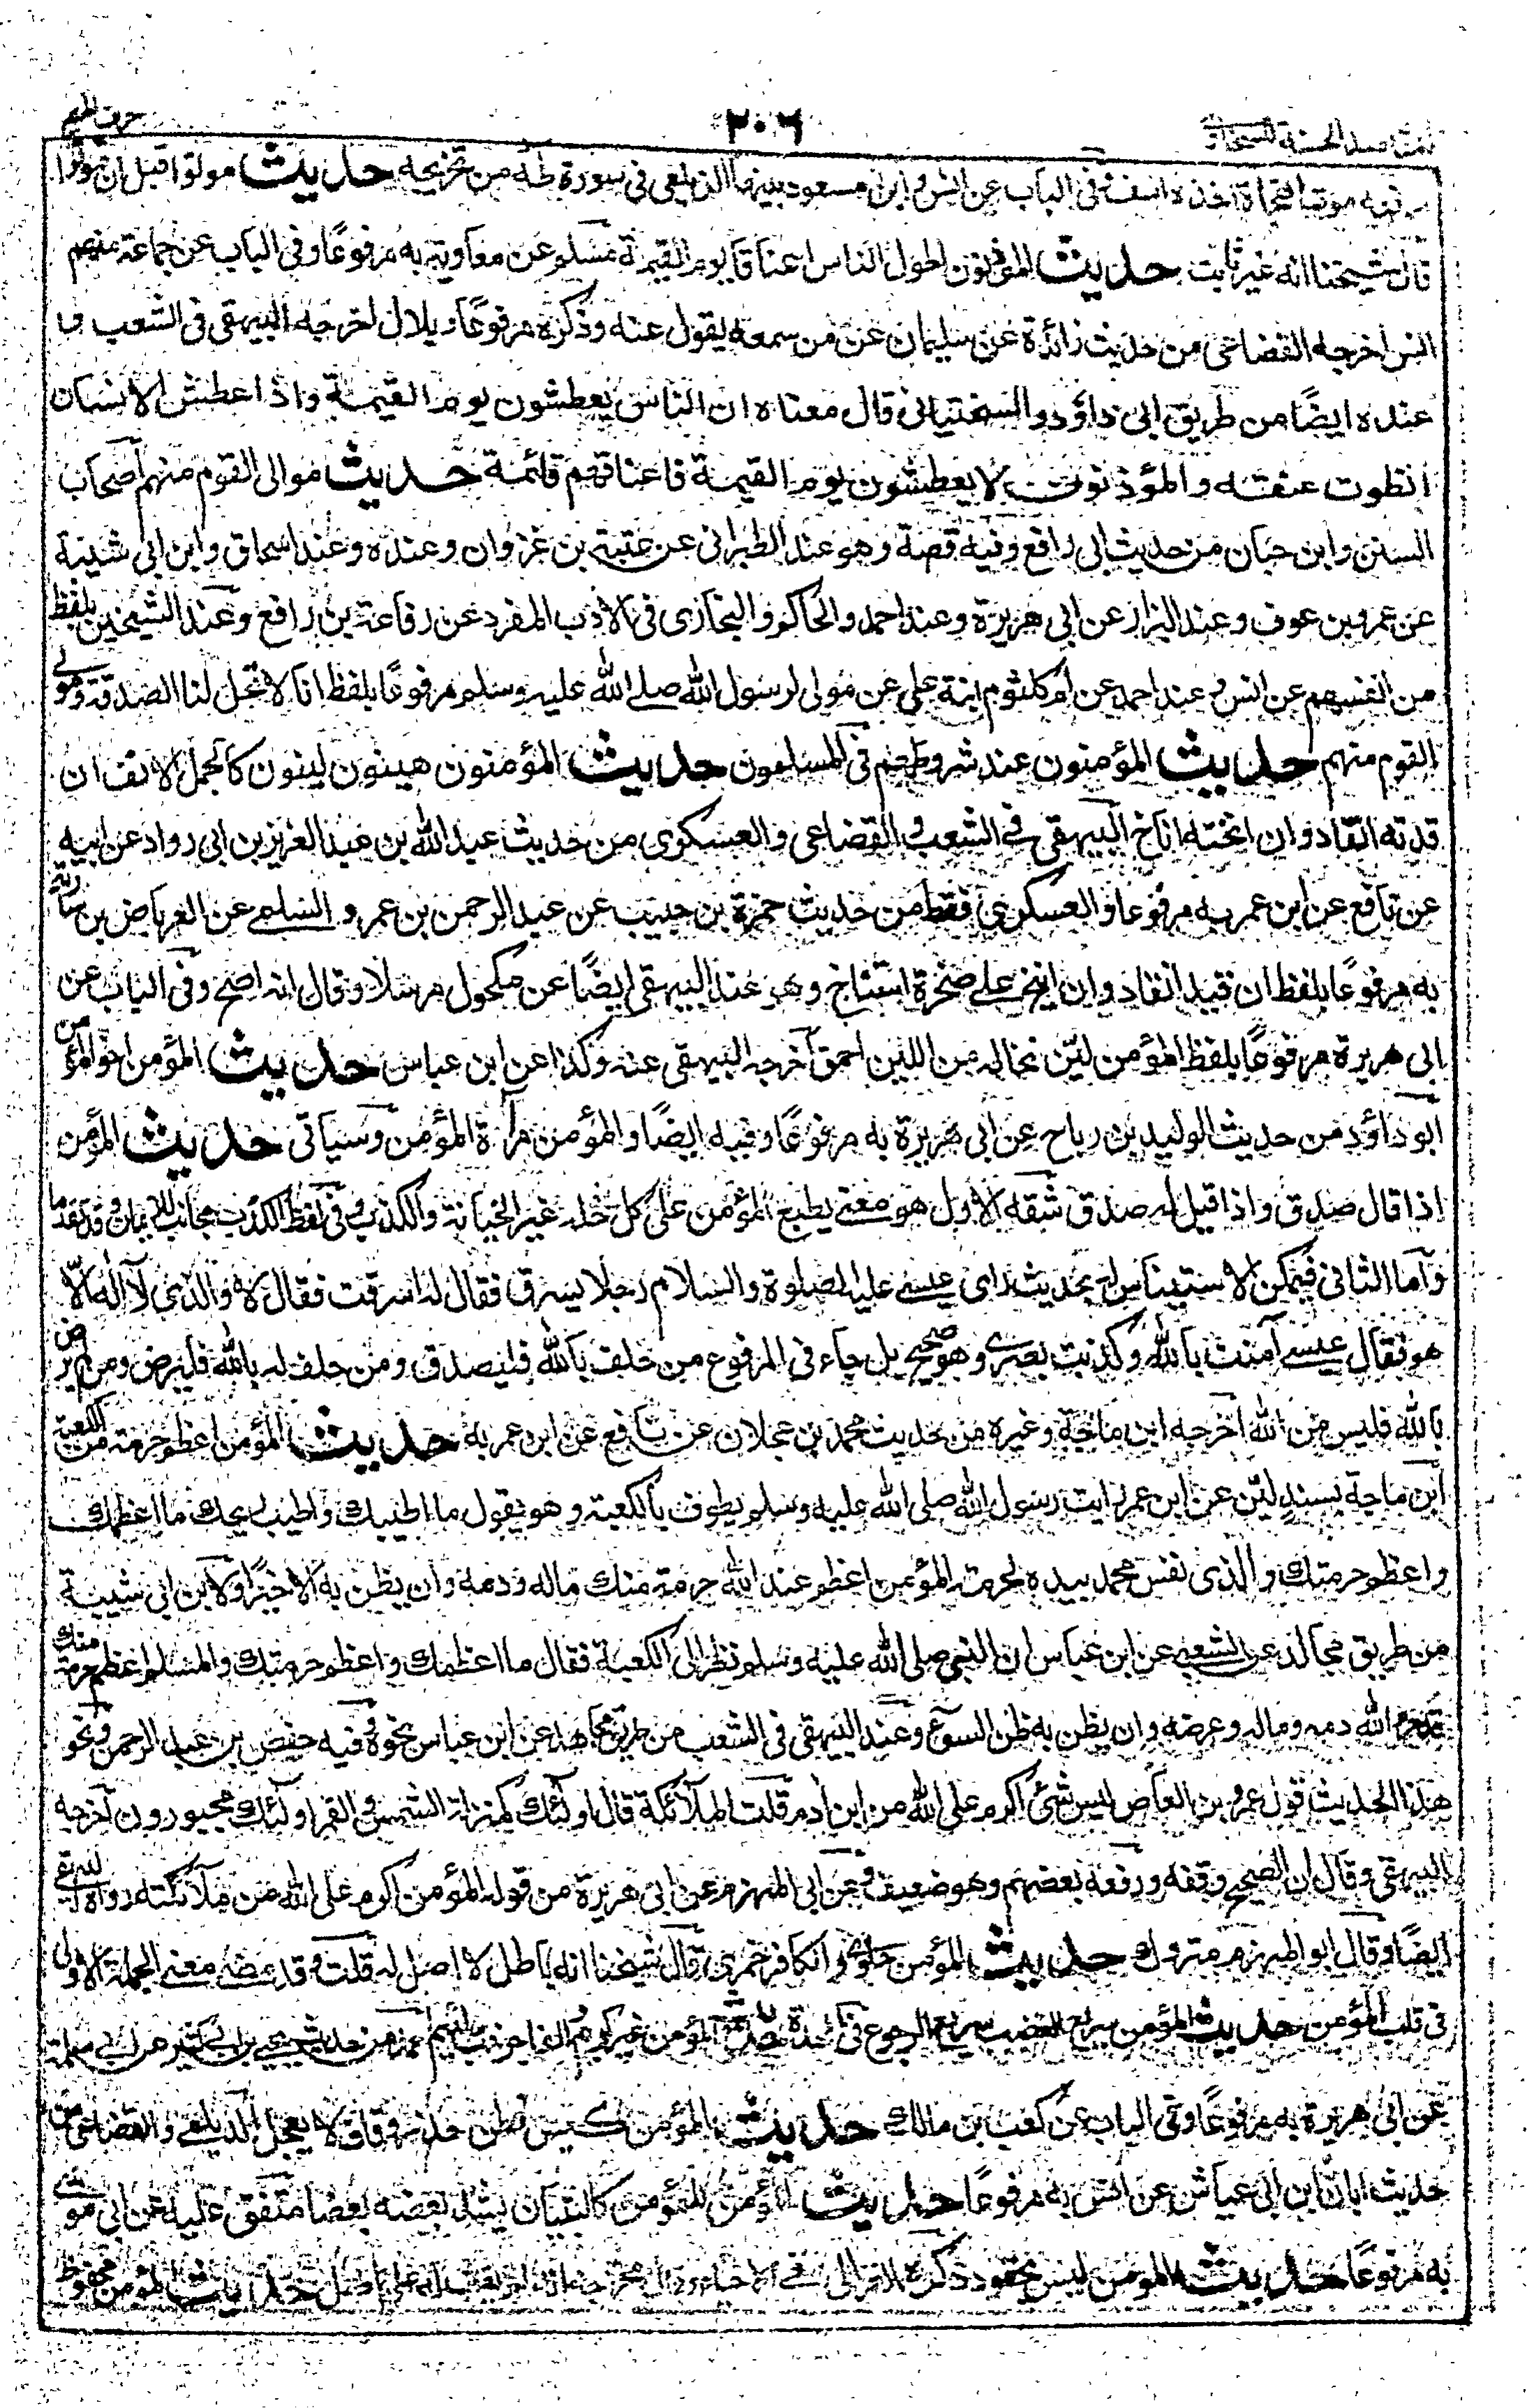 المقاصد الحسنة للسخاوي
٢٠٦
حرف الميم
فيه موت الفجاءة اخذة اسف وفى الباب عن انس وابن مسعود بينها الزيلعى فى سورة طه من تخريجه حديث موتوا قبل ان تموتوا
قال شيخنا انه غير ثابت حديث المؤذنون اطول الناس اعناقا يوم القيمة مسلم عن معاوية به مرفوعًا وفى الباب عن جماعة منهم
انس اخرجه القضاعى من حديث زائدة عن سليمان عن من سمعه يقول عنه وذكره مرفوعًا وبلال اخرجه البيهقى فى الشعب وا
عنده ايضًا من طريق ابى داؤد والسختيانى قال معناه ان الناس يعطشون يوم القيمة واذا عطش الانسان
انطوت عنقه والمؤذنون لا يعطشون يوم القيمة فاعناقهم قائمة حديث موالى القوم منهم اصحاب
السنن وابن حبان من حديث ابى رافع وفيه قصة وهو عند الطبرانى عن عتبة بن غزوان وعنده وعند اسحاق وابن ابى شيبة
عن عمرو بن عوف وعند البزار عن ابى هريرة وعند احمد والحاكم والبخارى فى الادب المفرد عن رفاعة بن رافع وعند الشيخين بلفظ
من انفسهم عن انس وعند احمد عن ام كلثوم ابنة على عن مولى لرسول الله صلے الله عليه وسلم مرفوعًا بلفظ انا لا تحل لنا الصدقة ومولى
القوم منهم حديث المؤمنون عند شروطهم فى المسلمون حديث المؤمنون هينون لينون كالجمل الانف ان
قدته انقاد وان انخته اناخ البيهقى فے الشعب والقضاعى والعسكرى من حديث عبد الله بن عبد العزيز بن ابى رواد عن ابيه
عن نافع عن ابن عمر به مرفوعا والعسكرى فقط من حديث حمزة بن حبيب عن عبد الرحمن بن عمرو السلمے عن العرباض بن سارية
به مرفوعًا بلفظ ان قيد انقاد وان انيخ علے صخرة استناخ وهو عند البيهقى ايضًا عن مكحول مرسلا وقال انه اصح وفى الباب عن
ابى هريرة مرفوعًا بلفظ المؤمن ليّن تخاله من اللين احمق اخرجه البيهقى عنه وكذا عن ابن عباس حديث المؤمن اخو المؤمن
ابو داؤد من حديث الوليد بن رباح عن ابى هريرة به مرفوعًا وفيه ايضًا والمؤمن مرآة المؤمن وسياتى حديث المؤمن
اذا قال صدق واذا قيل له صدق شقه الاول هو معنے يطبع المؤمن على كل خلة غير الخيانة والكذب وفى لفظ الكذب مجانب للايمان وقد تقدما
واما الثانى فيمكن الاستيناس له بحديث راى عيسے عليه الصلوة والسلام رجلا يسرق فقال له اسرقت فقال كلا والذى لا اله الا
هو فقال عيسے آمنت بالله وكذبت بصرى وهو صحيح بل جاء فى المرفوع من حلف بالله فليصدق ومن حلف له بالله فليرض ومن لم يرض
بالله فليس من الله اخرجه ابن ماجة وغيره من حديث محمد بن عجلان عن نافع عن ابن عمر به حديث المؤمن اعظم حرمة من الكعبة
ابن ماجة بسند ليّن عن ابن عمر رايت رسول الله صلى الله عليه وسلم يطوف بالكعبة وهو يقول ما اطيبك واطيب ريحك ما اعظمك
واعظم حرمتك والذى نفس محمد بيده لحرمة المؤمن اعظم عند الله حرمة منك ماله ودمه وان يظن به الا خيرًا ولابن ابى شيبة
من طريق مجالد عن الشعبے عن ابن عباس ان النبى صلى الله عليه وسلم نظر الى الكعبة فقال ما اعظمك واعظم حرمتك والمسلم اعظم حرمة منك
قد حرم الله دمه وماله وعرضه وان يظن به ظن السوء وعند البيهقى فى الشعب من طريق مجاهد عن ابن عباس نحوه وفيه حفص بن عبد الرحمن ونحو
هذا الحديث قول عمرو بن العاص ليس شئ اكرم على الله من ابن ادم قلت الملائكة قال اولئك بمنزلة الشمس والقمر اولئك مجبورون اخرجه
البيهقى وقال ان الصحيح وقفه ورفعه بعضهم وهو ضعيف وعن ابى المهزم عن ابى هريرة من قوله المؤمن اكرم على الله من ملائكته رواه البيهقى
ايضًا وقال ابو المهزم متروك حديث المؤمن حلوى والكافر خمرى قال شيخنا انه باطل لا اصل له قلت وقد مضى معنى الجملة الاولى
فى قلب المؤمن حديث المؤمن سريع الغضب سريع الرجوع فى الحدة حديث المؤمن غر كريم والفاجر خب لئيم احمد من حديث يحيى بن ابى كثير عن ابى سلمة
عن ابى هريرة به مرفوعًا وفى الباب عن كعب بن مالك حديث المؤمن كيس فطن حذر وقاف لا يعجل الديلمى والقضاعى من
حديث ابان ابن ابى عياش عن انس به مرفوعًا حديث المؤمن للمؤمن كالبنيان يشد بعضه بعضا متفق عليه عن ابى موسى
به مرفوعًا حديث المؤمن ليس بحقود ذكره الغزالى فى الاحياء وقال مخرجه انه لم يقف له على اصل حديث المؤمن محفوظ